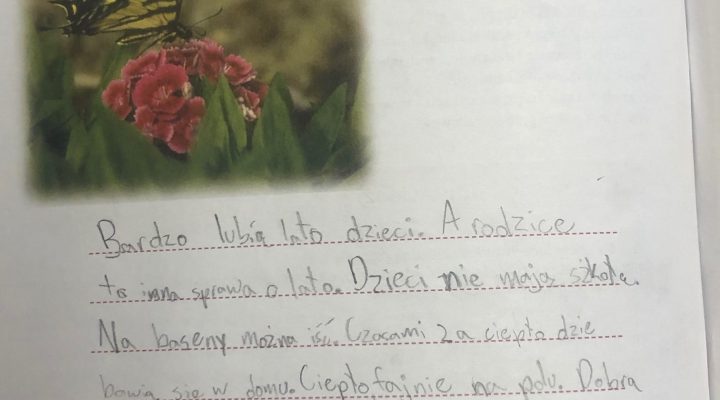 Bardzo lubią lato dzieci. A rodzice
to inna sprawa o lato. Dzieci nie mają szkołę.
Na baseny można iść. Czacami za ciepło dzie
bawią się w domu. Ciepło, fajnie na polu. Dobra